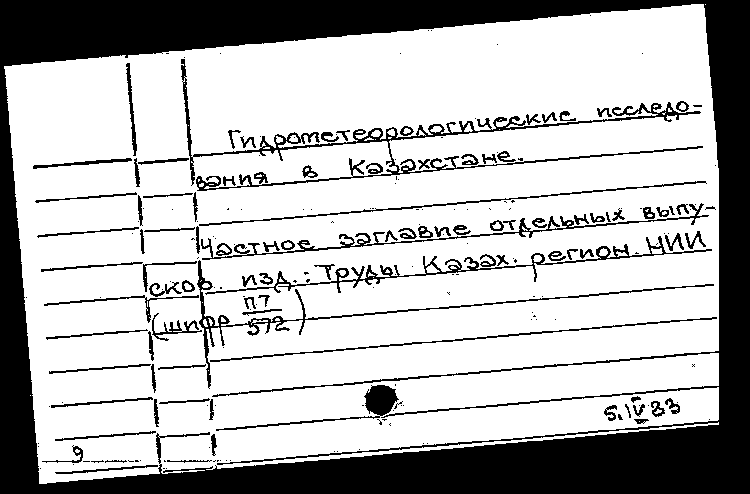 Гидрометеорологические исследо-
вания в Казахстане.
Частное заглавие отдельных выпу-
сков. изд.: Труды Казах. регион. НИИ
(шифр П7/572)
5.IV 83
9